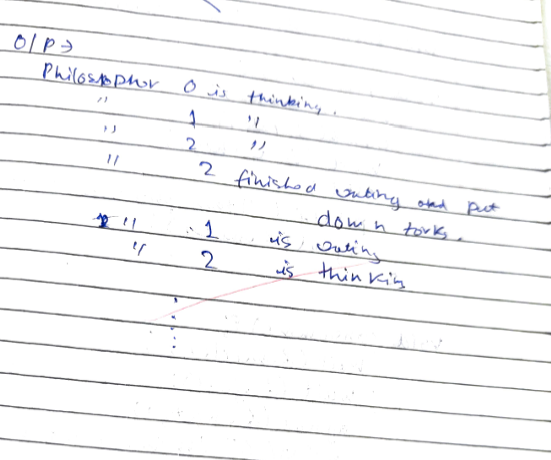 O/P →
Philosophor 0 is thinking.
" 1 "
" 2 "
" 2 finished eating and put
down forks.
" 1 is eating
" 2 is thinking